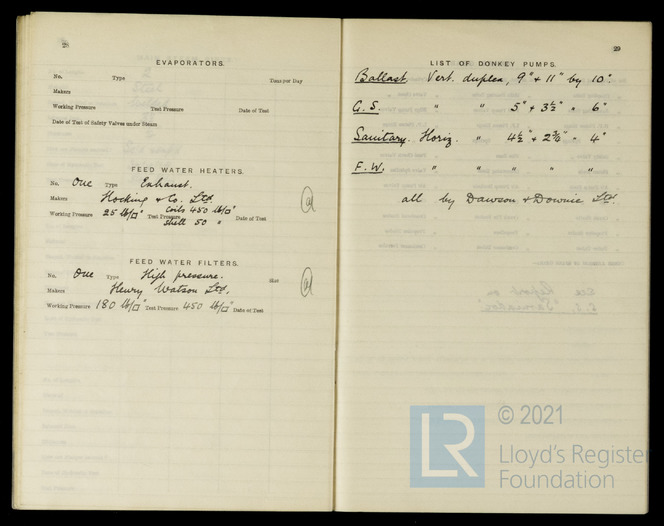 28
EVAPORATORS.
No. Type Tons per Day
Makers
Working Pressure Test Pressure Date of Test
Date of Test of Safety Valves under Steam
FEED WATER HEATERS.
No. One Type Exhaust.
Makers Hocking & Co. Ltd
Working Pressure 25 lb/□" Test Pressure coils 450 lb/□" Date of Test
shell 50 "
FEED WATER FILTERS.
No. One Type High pressure. Size
Makers Henry Watson Ltd.
Working Pressure 180 lb/□" Test Pressure 450 lb/□" Date of Test
29
LIST OF DONKEY PUMPS.
Ballast Vert. duplex, 9" & 11" by 10".
G.S. " " 5" & 3½" " 6"
Sanitary. Horiz. " 4½" & 2¾" " 4"
F.W. " " " " "
all by Dawson & Downie Ltd.
© 2021
LR Lloyd's Register
Foundation